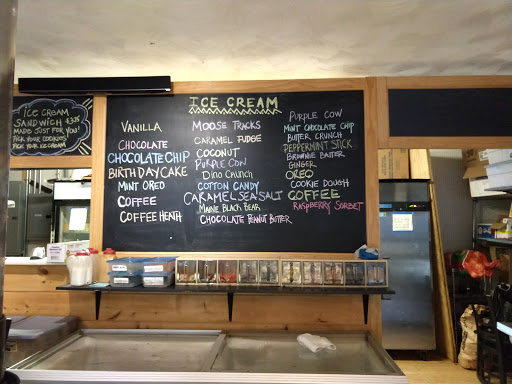 ICE CREAM
SANDWICH
MADE JUST FOR YOU!
PICK YOUR COOKIES
PICK YOUR ICE CREAM
ICE CREAM
VANILLA
CHOCOLATE
CHOCOLATE CHIP
BIRTHDAY CAKE
MINT OREO
COFFEE
COFFEE HEATH
MOOSE TRACKS
CARAMEL FUDGE
COCONUT
PURPLE COW
DINO CRUNCH
COTTON CANDY
CARAMEL SEA SALT
MAINE BLACK BEAR
CHOCOLATE PEANUT BUTTER
PURPLE COW
MINT CHOCOLATE CHIP
BUTTER CRUNCH
PEPPERMINT STICK
BROWNIE BATTER
GINGER
OREO
COOKIE DOUGH
COFFEE
RASPBERRY SORBET